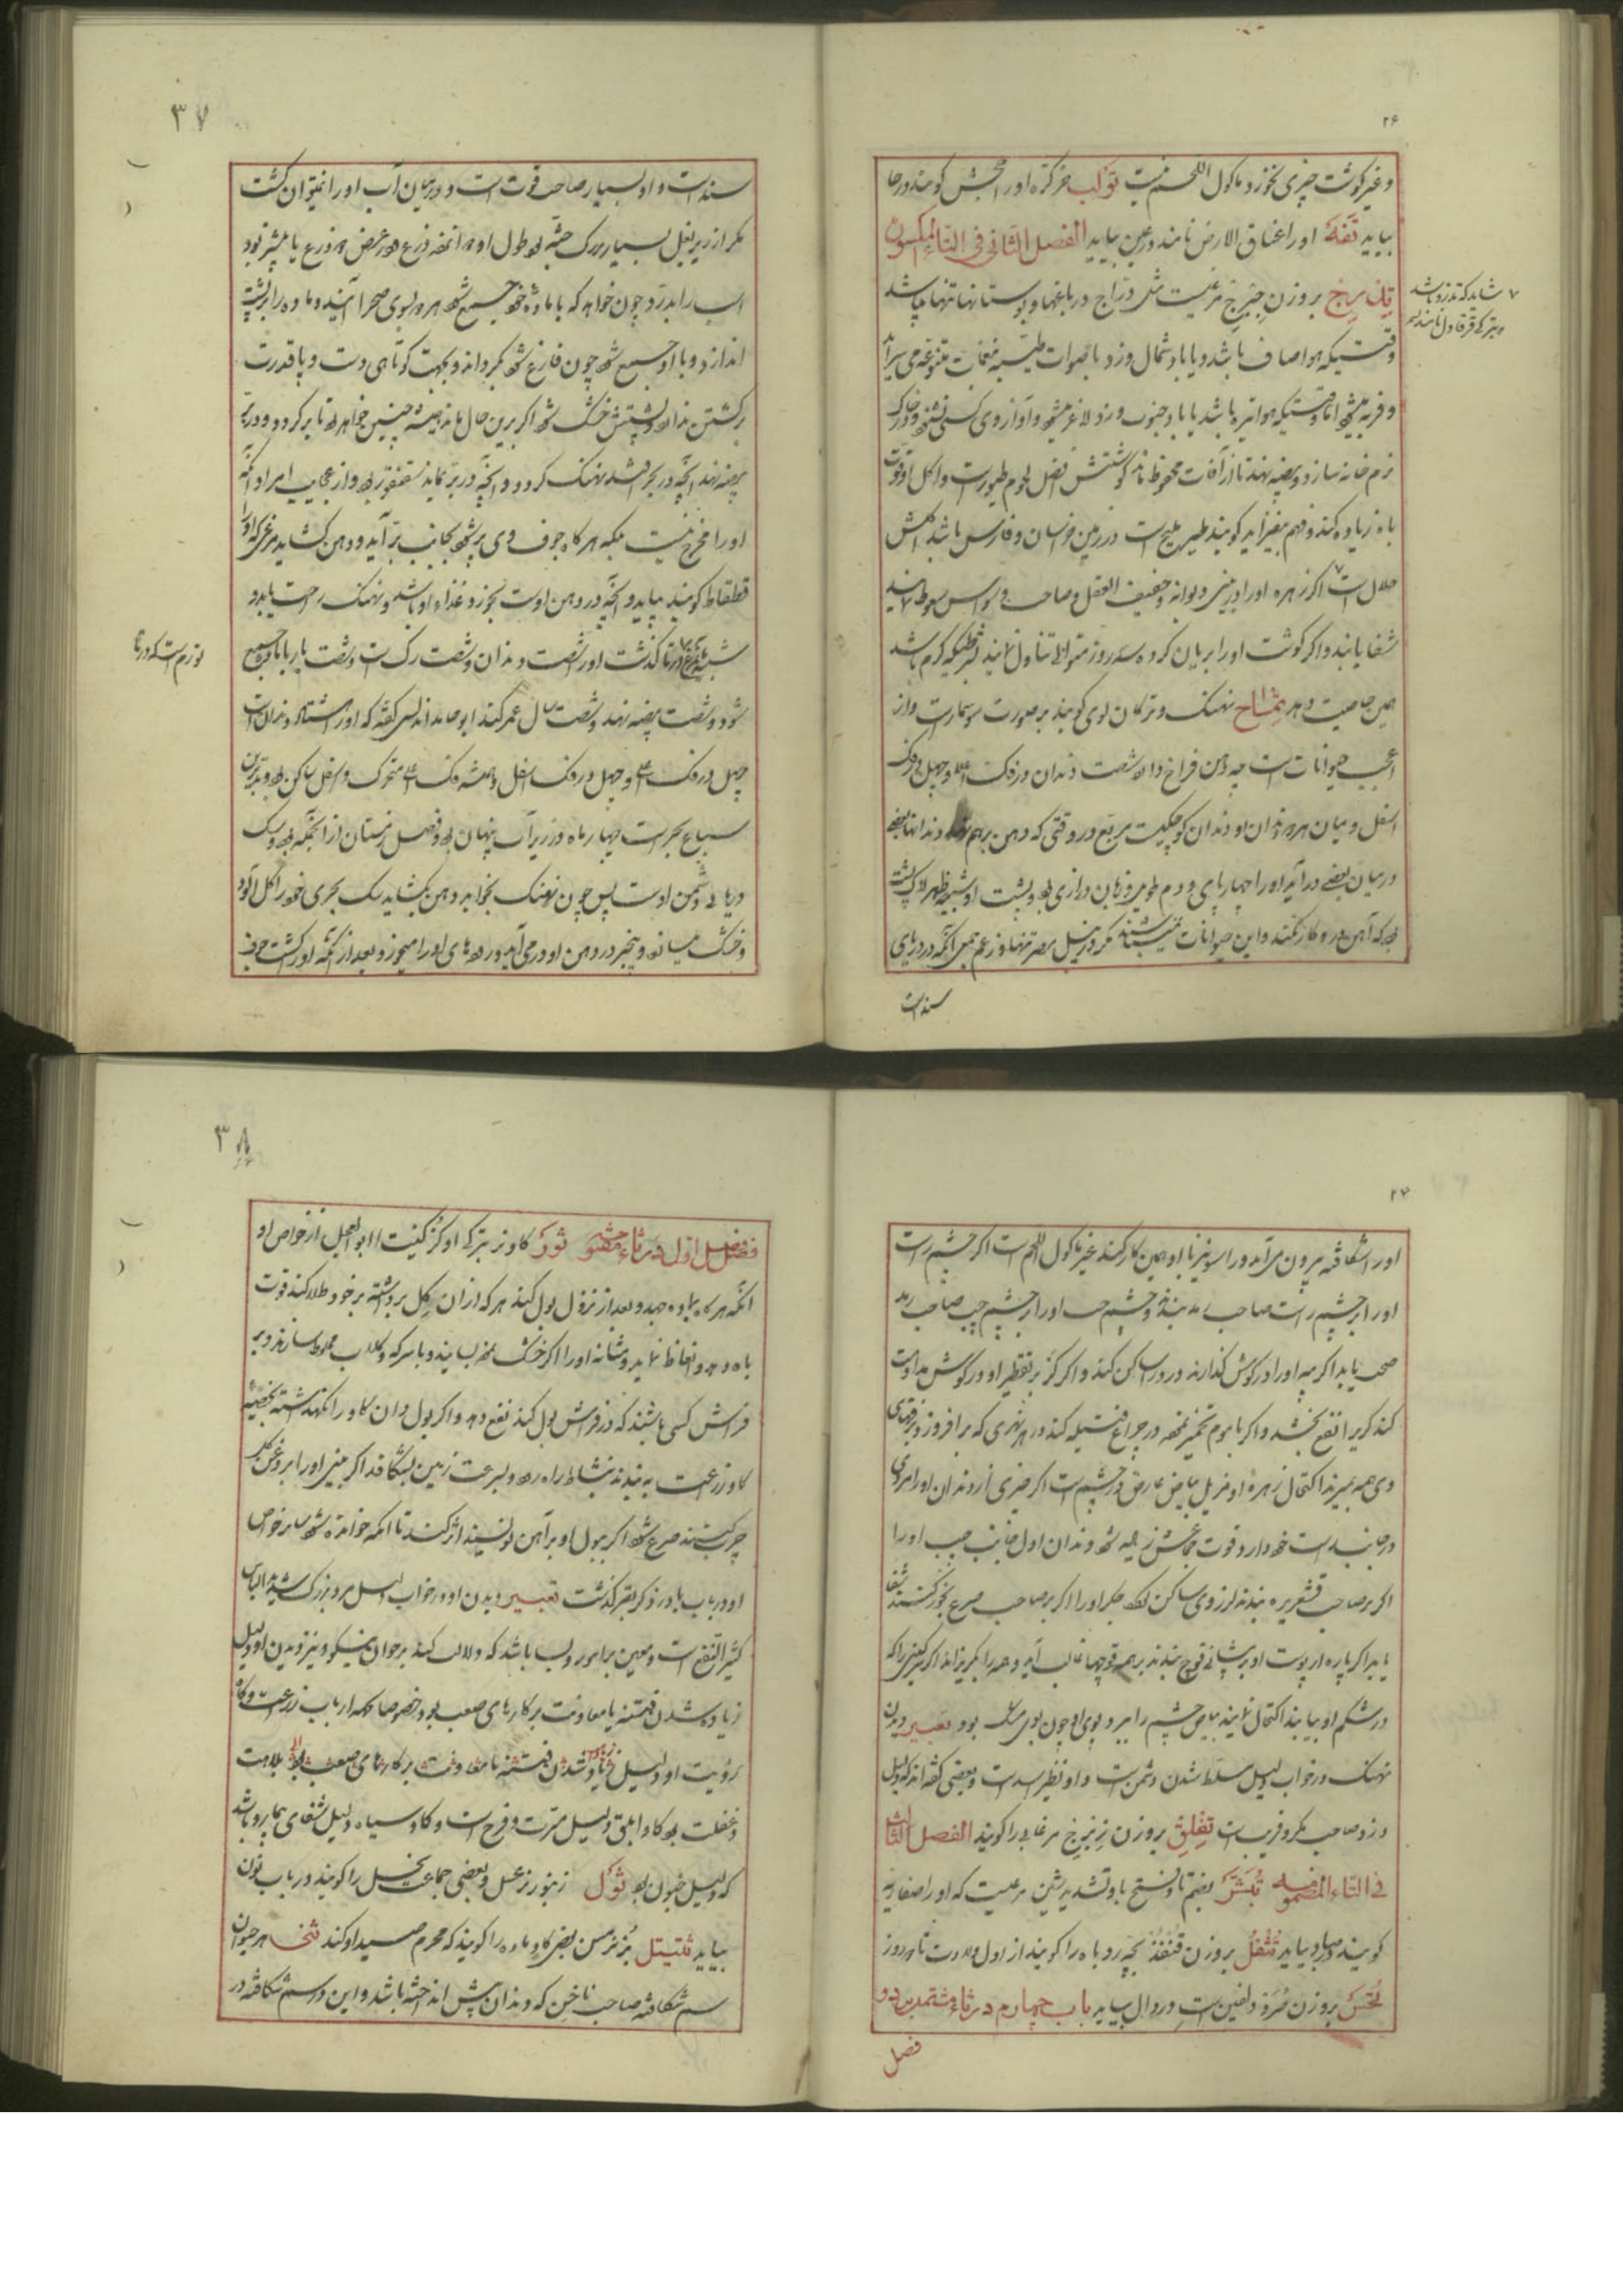 ۲۶
و غیر گوشت چیزی نخورد و ماکول اللحم نیست تولب خرکره و اورا جحش گویند در حا
بیاید تفه اورا عناق الارض نامند در عین بیاید الفصل الثانی فی التاء المکسوره
بروزن مرغیست مثل دراج در باغها و بوستانها تنها باشد
وقتیکه هوا صاف باشد و یا باد شمال وزد باصوات طیبه نغمات متنوعه می سراید
و فربه میشود اما وقتیکه هوا تیره باشد یا باد جنوب وزد لاغر میشود و آواز وی کسی نشنود و در خاک
نرم خانه سازد و بیضه نهد تا از آفات محفوظ ماند گوشتش افضل لحوم طیور است و اکل او قوت
باه زیاده کند و فهم بیفزاید گویند طیر ملیح است در زمین خراسان و فارس باشد اکلش
حلال است اگر زهره اورا در بینی دیوانه و خفیف العقل و صاحب وسواس سعوط نمایند
شفا یابند و اگر گوشت اورا بریان کرده سه روز متوالی تناول نمایند بشرطیکه گرم باشد
همین خاصیت دهد تمساح نهنگ و ترکان لوی گویند بر صورت سوسمار است و از
عجب حیوانات است چه دهن فراخ دارد شصت دندان در فک اعلا و چهل در فک
اسفل و میان هر دو دندان او دندان کوچکیست مربع در وقتی که دهن برهم نهد دندانها بعضی
در میان بعضی درآید و اورا چهار پای و دم طویل و زبان درازی بود و پشت او شبیه بظهر لاک پشت
بود که آهن درو کار نکند و این حیوانات نمیباشند مگر در نیل مصر تنها و زعم جمعی آنکه در دریای
سند است
شاید که تذرو باشد
و بترکی قرقاول نامند
۳۷
سند است و او بسیار صاحب قوت است و در میان آب اورا نمیتوان کشت
مگر از زیر بغل بسیار بزرگ جثه بود طول او ده ذرع و در عرض دو ذرع یا بیشتر بود
اسب را بدرد و چون خواهد که با ماده خود جمع شود هر دو بسوی صحرا آیند و ماده را بر پشت
اندازد و با او جمع شود چون فارغ شود بگرداند و بجهت کوتاهی دست و پا قدرت
برگشتن ندارد و پشتش خشک شود اگر برین حال ماند همیشه چنین خواهد بود تا برگردد و در بر
بیضه نهد آنچه در بحر افتد نهنگ گردد و آنچه در بر بماند سقنقور بود و از عجایب امر او آنکه
اورا مخرج نیست بلکه هرگاه جوف وی پر شود بجانب بر آید و دهن گشاید مرغی که اورا
قطقاط گویند بیاید و آنچه در دهن اوست بخورد و غذاء او باشد و نهنگ راحت یابد و
گذشت اورا شصت دندان و شصت رگ است و شصت بار با ماده جمع
شود و شصت بیضه نهد و شصت سال عمر کند ابو حامد اندلسی گفته که اورا هشتاد دندان است
چهل در فک اعلی و چهل در فک اسفل و همیشه فک اعلی متحرک و اسفل ساکن بود و بدترین
سباع بحر است چهار ماه در زیر آب پنهان بود و فصل زمستان از آنجمله بود و سگ
دریایی دشمن اوست پس چون نهنگ بخوابد و دهن بگشاید سگ بحری خود را گل آلود
و خشک میسازد و بیخبر در دهن او درمی آید و روده های اورا میخورد و بعد از آنکه اورا کشت جوف
لوزم است که در تا
۲۷
اورا شکافته بیرون می آید و راسو نیز با او همین کار کند غیر ماکول اللحم است اگر چشم راست
اورا بر چشم راست صاحب رمد بندند و چشم چپ اورا بر چشم چپ صاحب رمد
صحت یابد اگر پیه اورا در گوش گذارند درد را ساکن کند و اگر بر تقطیر او در گوش مداومت
کند کری را نفع بخشد و اگر با موم خمیر نموده در چراغ فتیله کند در هر نهری که برافروزد غوکهای
وی همه بمیرند اکتحال زهرهٔ او مزیل بیاض عارض در چشم است اگر چیزی از دندان اورا مردی
در جانب راست خود دارد قوت جماعش زیاده شود دندان اول جانب چپ اورا
اگر بر صاحب قشعریره بندند لرز وی ساکن گردد جگر اورا اگر بر صاحب صرع بخور کنند شفا
یابد اگر پاره از پوست او بر پیشانی قوچ بندند بر همه قوچها غالب آید و همه را بگریزاند اگر سرگینی را که
در شکم او بیابند اکتحال نمایند بیاض چشم را ببرد و بوی او چون بوی مشک بود تعبیر دیدن
نهنگ در خواب دلیل مسلط شدن دشمن است و او نظیر اسد است و بعضی گفته اند که دلیل
دزد و صاحب مکر و فریب است تفلق بروزن زبرج مرغابی را گویند الفصل الثالث
فی التاء المضمومه تبشر بضم تا و فتح با و تشدید شین مرغیست که اورا صفاریه
گویند در صاد بیاید تتفل بروزن قنفذ بچه روباه را گویند از اول ولادت تا دو روز
تخس بروزن صرد دلفین است در دال بیاید باب چهارم در ثاء مشتمل بر دو
فصل
۳۸
فصل اول در ثاء مفتوحه ثور گاو نر بترکی اوکز کنیت ابو العجل از خواص او
آنکه هرگاه بماده جهد و بعد از نزول بول کند هر که از آن گل برداشته بر خود طلا کند قوت
باه دهد و انعاظ نماید و مثانه اورا اگر خشک نموده بسایند و با سرکه و گلاب مخلوط سازند و بر
فراش کسی باشند که در فراش بول کند نفع دهد و اگر بول آن گاو را نگهداشته بخصیهٔ
گاو زراعت بمالند بنشاط راه رود و بسرعت زمین بشکافد اگر بینی اورا بروغن گل
چرب کنند صرع شود اگر ببول او بر آهن نویسند اثر کند تا آنکه خوانده شود سایر خواص
او در باب با در ذکر بقر گذشت تعبیر دیدن او در خواب دلیل مرد بزرگ شدید الباس
کثیر النفع است و معین بر امور و بسا باشد که دلالت کند بر جوان نیکو و نیز دیدن او دلیل
زیاده شدن فتنه یا معاونت بر کارهای صعب بود خصوصا ارباب زراعت و گاه
رؤیت او دلیل زیاده شدن فتنه یا معاونت بر کارهای صعب بود بلاهت
و غفلت بود گاو ابلق دلیل مسرت و فرح است و گاو سیاه دلیل شفای بیمار و باشد
که دلیل جنون بود ثول زنبور نر عسل و بعضی جماعت نحل را گویند در باب نون
بیاید ثیتل بز نر مسن بعضی گاو ماده را گویند که محرم صید او کند هر حیوان
سم شکافته صاحب ناخن که دندان پیش انداخته باشد و این در سم شکافته در